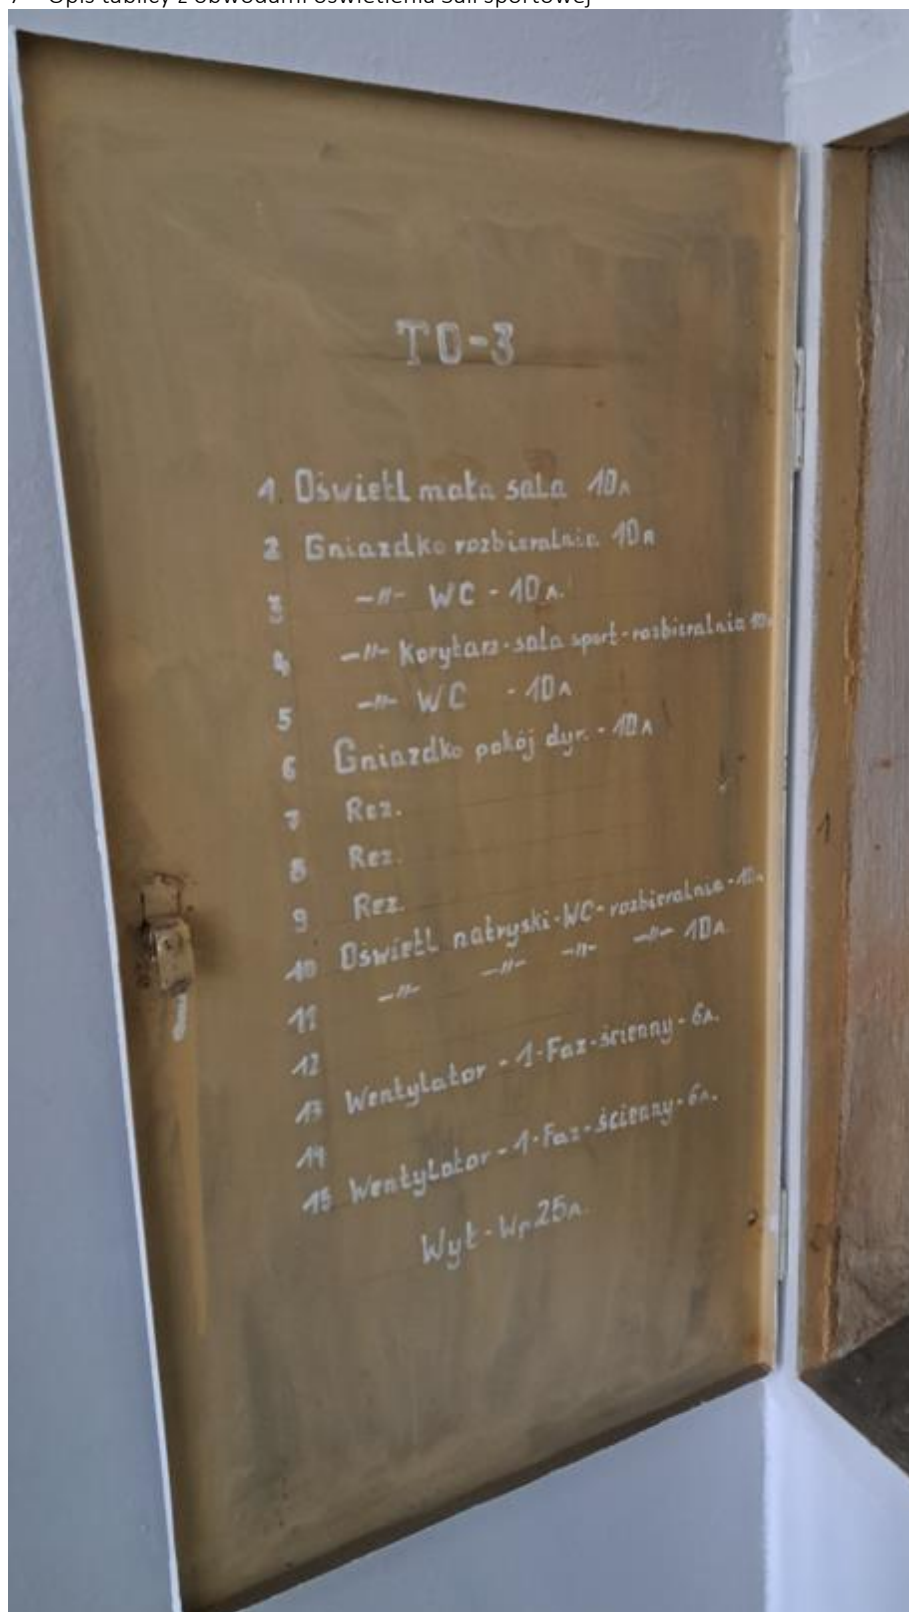 7 Opis tablicy z obwodami oświetlenia Sali sportowej
TO-3
1 Oświetl mała sala 10A
2 Gniazdko rozbieralnia 10A
3 -"- WC - 10A.
4 -"- Korytarz - sala sport - rozbieralnia 10A
5 -"- WC - 10A
6 Gniazdko pokój dyr. - 10A
7 Rez.
8 Rez.
9 Rez.
10 Oświetl natryski - WC - rozbieralnia - 10A
11 -"- -"- -"- -"- 10A
12
13 Wentylator - 1-Faz - ścienny - 6A.
14
15 Wentylator - 1-Faz - ścienny - 6A.
Wył - Wp 25A.
1